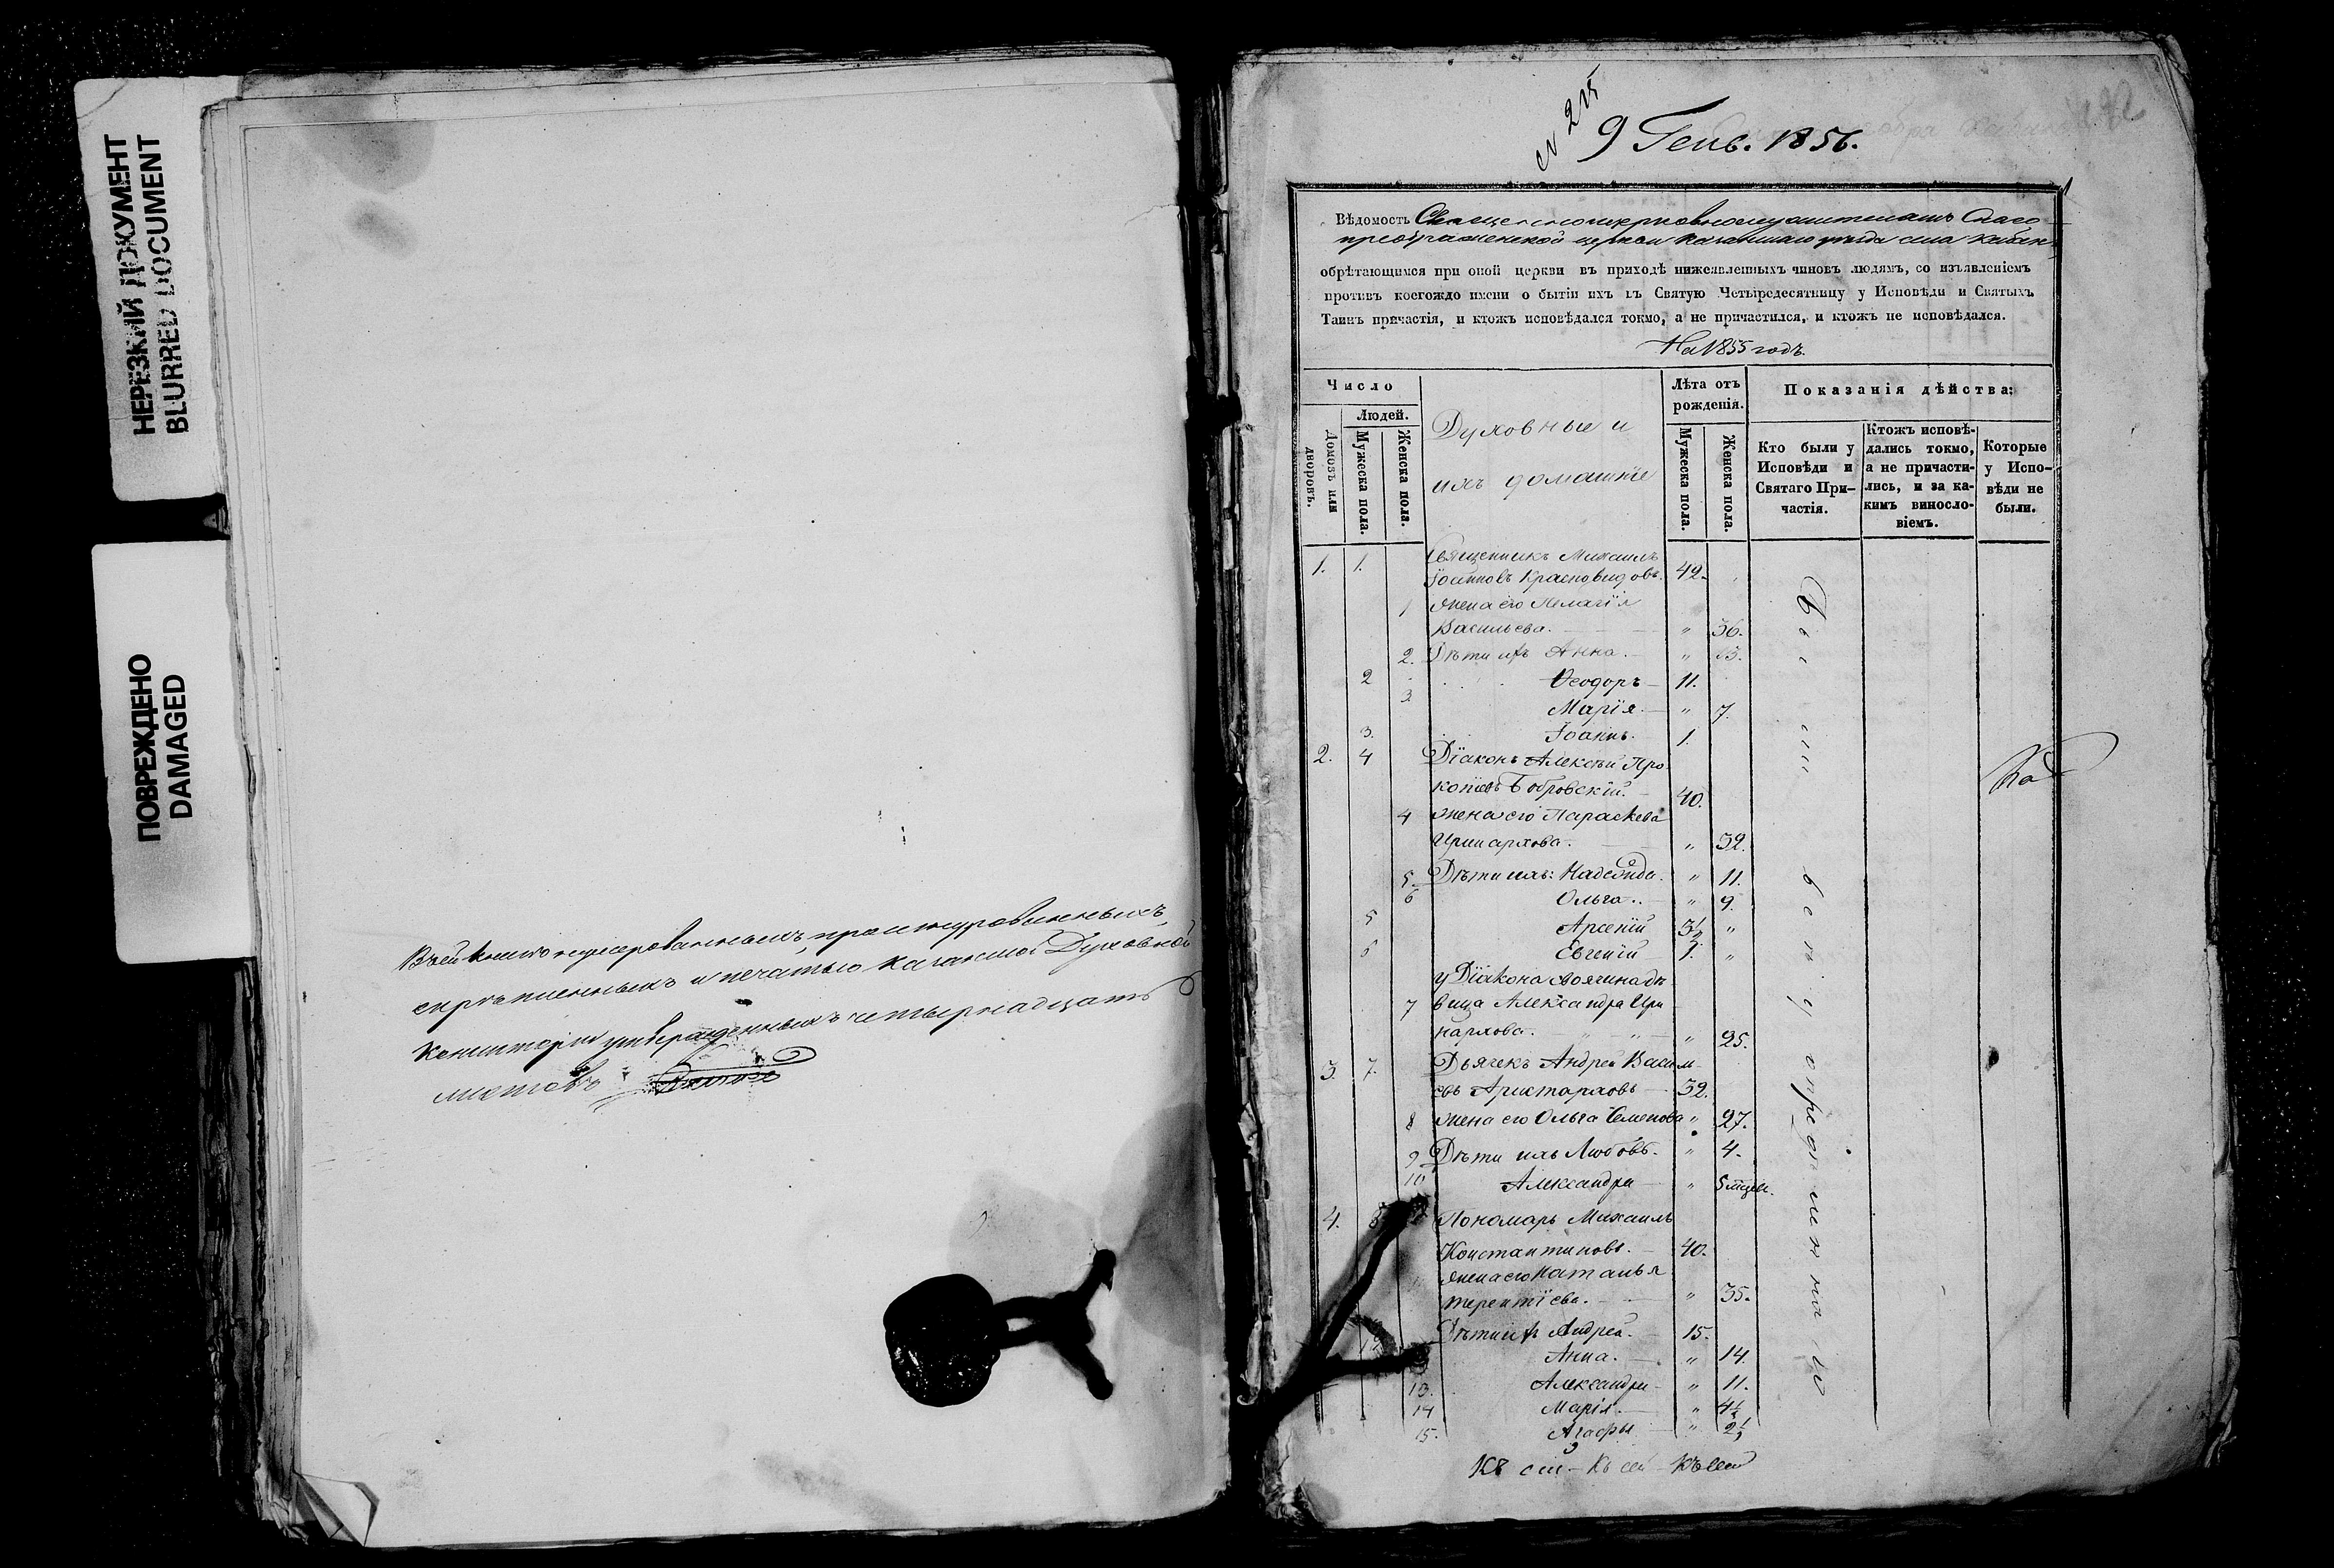 НЕРЕЗКИЙ ДОКУМЕНТ
BLURRED DOCUMENT
ПОВРЕЖДЕНО
DAMAGED
Въ сей книге нумерованныхъ, прошнурованныхъ,
скрѣпленныхъ и печатью Казанской Духовной
Консисторiи утвержденныхъ четырнадцать
листовъ
№ 215
9 Генв. 1856.
Вѣдомость Священноцерковнослужителямъ Спасо
преображенской церкви Казанскаго уѣзда села Кабан
обрѣтающимся при оной церкви въ приходѣ нижеявленныхъ чиновъ людямъ, со изъявленіемъ
противъ коегождо имени о бытіи ихъ въ Святую Четыредесятницу у Исповѣди и Святыхъ
Таинъ причастія, и ктожъ исповѣдался токмо, а не причастился, и ктожъ не исповѣдался.
На 1855 годъ.
Число
Домовъ или дворовъ.
Людей.
Мужеска пола.
Женска пола.
Духовные и
ихъ домашніе
Лѣта отъ
рожденія.
Мужеска пола.
Женска пола.
Показанія дѣйства:
Кто были у
Исповѣди и
Святаго При-
частія.
Ктожъ исповѣ-
дались токмо,
а не причасти-
лись, и за ка-
кимъ винословіемъ.
Которые
у Испо-
вѣди не
были.
1. 1. Священникъ Михаилъ
Іоанновъ Красновидовъ. 42.
1 Жена его Пелагія
Васильева. " 36.
2. Дѣти ихъ Анна. "
2 Ѳеодоръ 11.
3 Марія. " 7.
3. Іоаннъ. 1.
2. 4 Діаконъ Алексѣй Про
копіевъ Бобровскій. 40.
4 Жена его Параскева
Иринархова. " 32.
5. Дѣти ихъ: Надежда. " 11.
6 Ольга. " 9.
5 Арсеній 3½ "
6 Евгеній 1. "
у Діакона своячина дѣ
7 вица Александра Ири
нархова. " 25.
3. 7. Дьячекъ Андрей Василь
евъ Аристарховъ 32.
8 Жена его Ольга Семенова " 27.
9 Дѣти ихъ Любовь. " 4.
10 Александра " 5 мѣцев.
4. 8 Пономарь Михаилъ
Константиновъ. 40.
Жена его Наталья
Терентіева. " 35.
Дѣти ихъ Андрей. 15.
Анна. " 14.
13. Александра " 11.
14 Марія. " 4½
15. Агафья " 2½
Къ сей - Къ сей - Къ сей